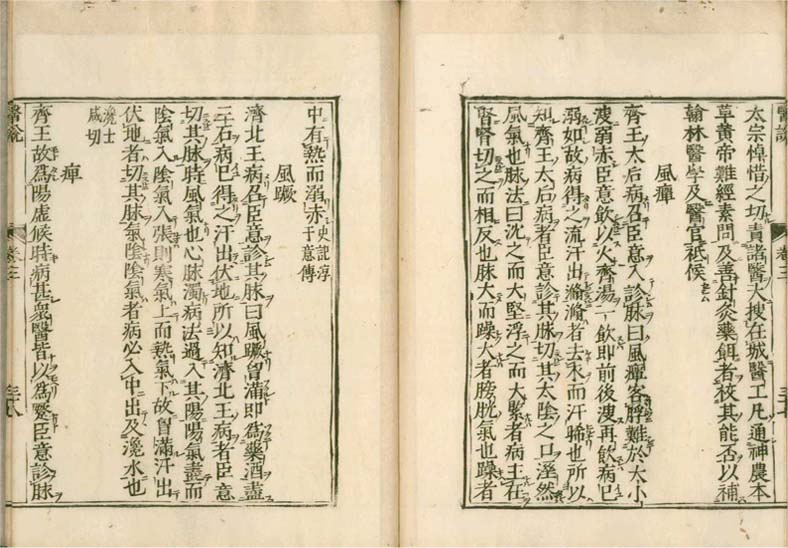 太宗悼惜之切責諸醫大搜在城醫工凡通神農本
草黃帝難經素問及善針灸藥餌者校其能否以補
翰林醫學及醫官祇候
風癉
齊王太后病召臣意入診脉曰風癉客脬難於大小
溲溺赤臣意飲以火齊湯一飲即前後溲再飲病已
溺如故病得之流汗出滫滫者去衣而汗晞也所以
知齊王太后病者臣意診其脉切其太陰之口溼然
風氣也脉法曰沈之而大堅浮之而大緊者病主在
腎腎切之而相反也脉大而躁大者膀胱氣也躁者
醫說
卷三
中有熱而溺赤史記淳
于意傳
風蹶
濟北王病召臣意診其脉曰風蹶胷滿即爲藥酒盡
三石病已得之汗出伏地所以知濟北王病者臣意
切其脉時風氣也心脉濁病法過入其陽陽氣盡而
陰氣入陰氣入張則寒氣上而熱氣下故胷滿汗出
伏地者切其脉氣陰陰氣者病必入中出及瀺水也
瀺士
咸切
痺
齊王故爲陽虛候時病甚衆醫皆以爲蹷臣意診脉
醫說
卷三
三十八